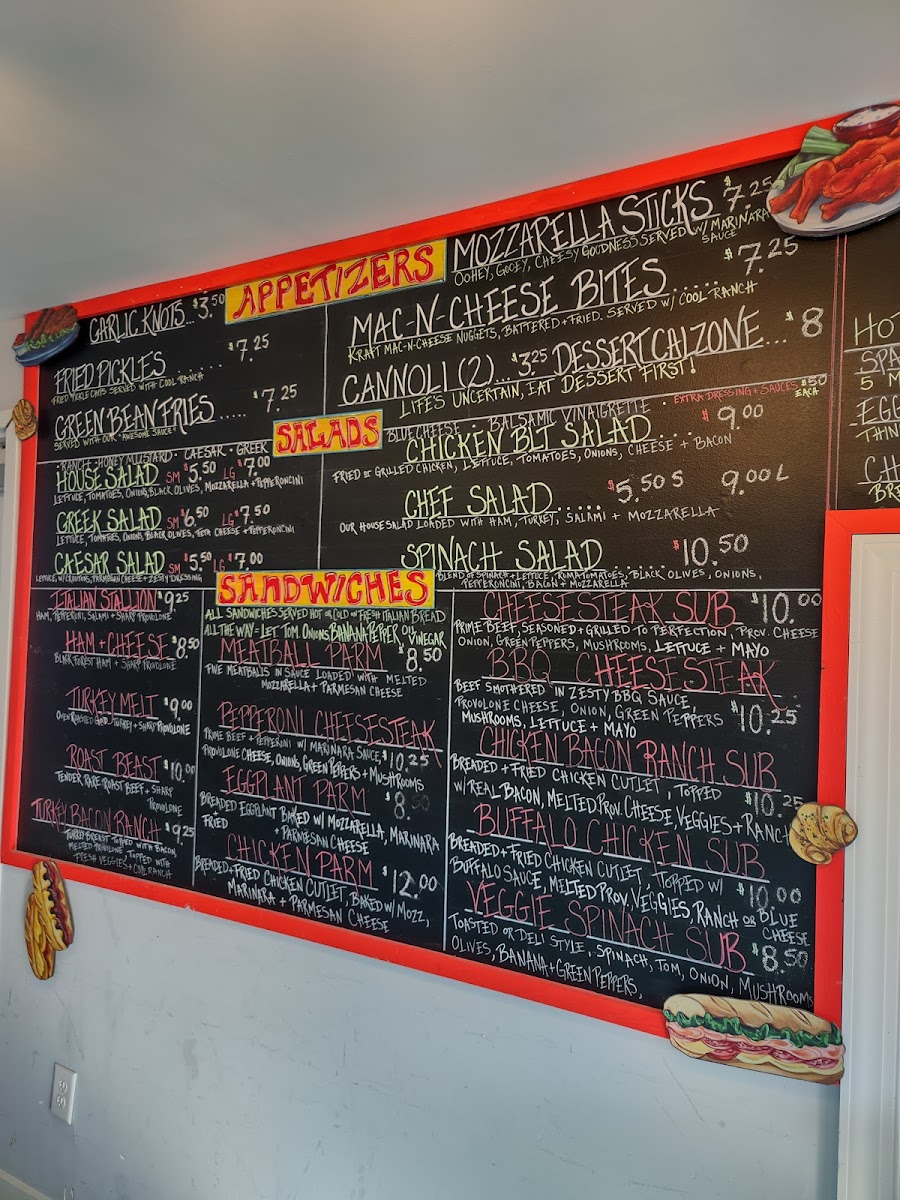 APPETIZERS
GARLIC KNOTS... $3.50
FRIED PICKLES ........ $7.25
FRIED PICKLE CHIPS SERVED WITH COOL RANCH
GREEN BEAN FRIES..... $7.25
SERVED WITH OUR "AWESOME SAUCE"
MOZZARELLA STICKS $7.25
OOHEY, GOOEY, CHEESY GOODNESS SERVED W/ MARINARA
SAUCE
MAC-N-CHEESE BITES...... $7.25
KRAFT MAC-N-CHEESE NUGGETS, BATTERED + FRIED. SERVED W/ COOL RANCH
CANNOLI (2)... $3.25 DESSERT CALZONE... $8
LIFE'S UNCERTAIN, EAT DESSERT FIRST!
SALADS
· RANCH · HONEY MUSTARD · CAESAR · GREEK
BLUE CHEESE · BALSAMIC VINAIGRETTE · EXTRA DRESSING + SAUCES $.50
EACH
HOUSE SALAD SM $5.50 LG $7.00
LETTUCE, TOMATOES, ONIONS, BLACK OLIVES, MOZZARELLA + PEPPERONCINI
GREEK SALAD SM $6.50 LG $7.50
LETTUCE, TOMATOES, ONIONS, BLACK OLIVES, FETA CHEESE + PEPPERONCINI
CAESAR SALAD SM $5.50 LG $7.00
LETTUCE, W/ CROUTONS, PARMESAN CHEESE + ZESTY DRESSING
CHICKEN BLT SALAD..... $9.00
FRIED OR GRILLED CHICKEN, LETTUCE, TOMATOES, ONIONS, CHEESE + BACON
CHEF SALAD...... $5.50 S 9.00 L
OUR HOUSE SALAD LOADED WITH HAM, TURKEY, SALAMI + MOZZARELLA
SPINACH SALAD ....... $10.50
BLEND OF SPINACH + LETTUCE, ROMA TOMATOES, BLACK OLIVES, ONIONS,
PEPPERONCINI, BACON + MOZZARELLA
SANDWICHES
ALL SANDWICHES SERVED HOT OR COLD ON FRESH ITALIAN BREAD
ALL THE WAY - LET TOM ONIONS BANANA PEPPER OIL VINEGAR
ITALIAN STALLION $9.25
HAM, PEPPERONI, SALAMI + SHARP PROVOLONE
HAM + CHEESE $8.50
BLACK FOREST HAM + SHARP PROVOLONE
TURKEY MELT $9.00
OVEN ROASTED TURKEY + SHARP PROVOLONE
ROAST BEAST $10.00
TENDER RARE ROAST BEEF + SHARP
PROVOLONE
TURKEY BACON RANCH $9.25
TURKEY BREAST TOPPED WITH BACON
MELTED PROVOLONE, TOPPED WITH
FRESH VEGGIES + COOL RANCH
MEATBALL PARM $8.50
FIVE MEATBALLS IN SAUCE LOADED WITH MELTED
MOZZARELLA + PARMESAN CHEESE
PEPPERONI CHEESESTEAK
PRIME BEEF + PEPPERONI W/ MARINARA SAUCE, $10.25
PROVOLONE CHEESE, ONIONS, GREEN PEPPERS + MUSHROOMS
EGGPLANT PARM $8.50
BREADED EGGPLANT BAKED W/ MOZZARELLA, MARINARA
FRIED + PARMESAN CHEESE
CHICKEN PARM $12.00
BREADED + FRIED CHICKEN CUTLET, BAKED W/ MOZZ,
MARINARA + PARMESAN CHEESE
CHEESESTEAK SUB $10.00
PRIME BEEF, SEASONED + GRILLED TO PERFECTION, PROV. CHEESE
ONION, GREEN PEPPERS, MUSHROOMS, LETTUCE + MAYO
BBQ CHEESESTEAK
BEEF SMOTHERED IN ZESTY BBQ SAUCE,
PROVOLONE CHEESE, ONION, GREEN PEPPERS $10.25
MUSHROOMS, LETTUCE + MAYO
CHICKEN BACON RANCH SUB
BREADED + FRIED CHICKEN CUTLET, TOPPED $10.25
W/ REAL BACON, MELTED PROV. CHEESE, VEGGIES + RANCH
BUFFALO CHICKEN SUB
BREADED + FRIED CHICKEN CUTLET, TOPPED W/ $10.00
BUFFALO SAUCE, MELTED PROV, VEGGIES, RANCH OR BLUE
CHEESE
VEGGIE SPINACH SUB $8.50
TOASTED OR DELI STYLE, SPINACH, TOM, ONION, MUSHROOMS
OLIVES, BANANA + GREEN PEPPERS,
HOT
SPA
5 M
EGG
THIN
CH
BRE